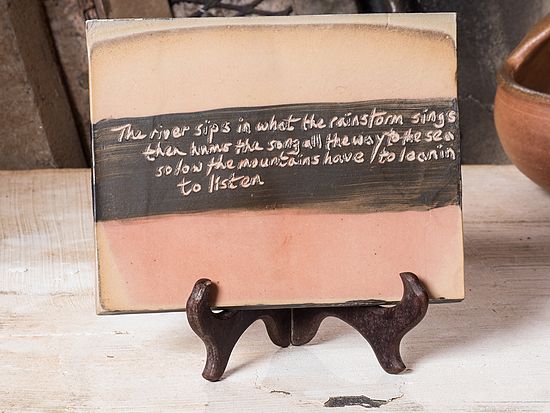 The river sips in what the rainstorm sings
then hums the song all the way to the sea
so low the mountains have to lean in
to listen